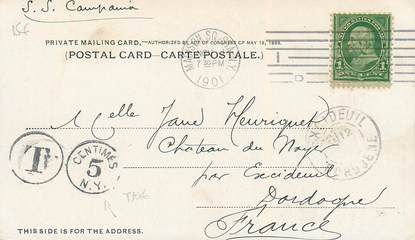 S. S. Campania
156
PRIVATE MAILING CARD.—AUTHORIZED BY ACT OF CONGRESS OF MAY 19, 1898.
(POSTAL CARD - CARTE POSTALE.)
MADISON SQ. STA. N.Y.
7 30PM
1901
1
Melle Jane Henriquet
Château du Noyer
par Excideuil
Dordogne
France
T
CENTIMES
5
N.Y.
TAXE
EXCIDEUIL
DORDOGNE
THIS SIDE IS FOR THE ADDRESS.